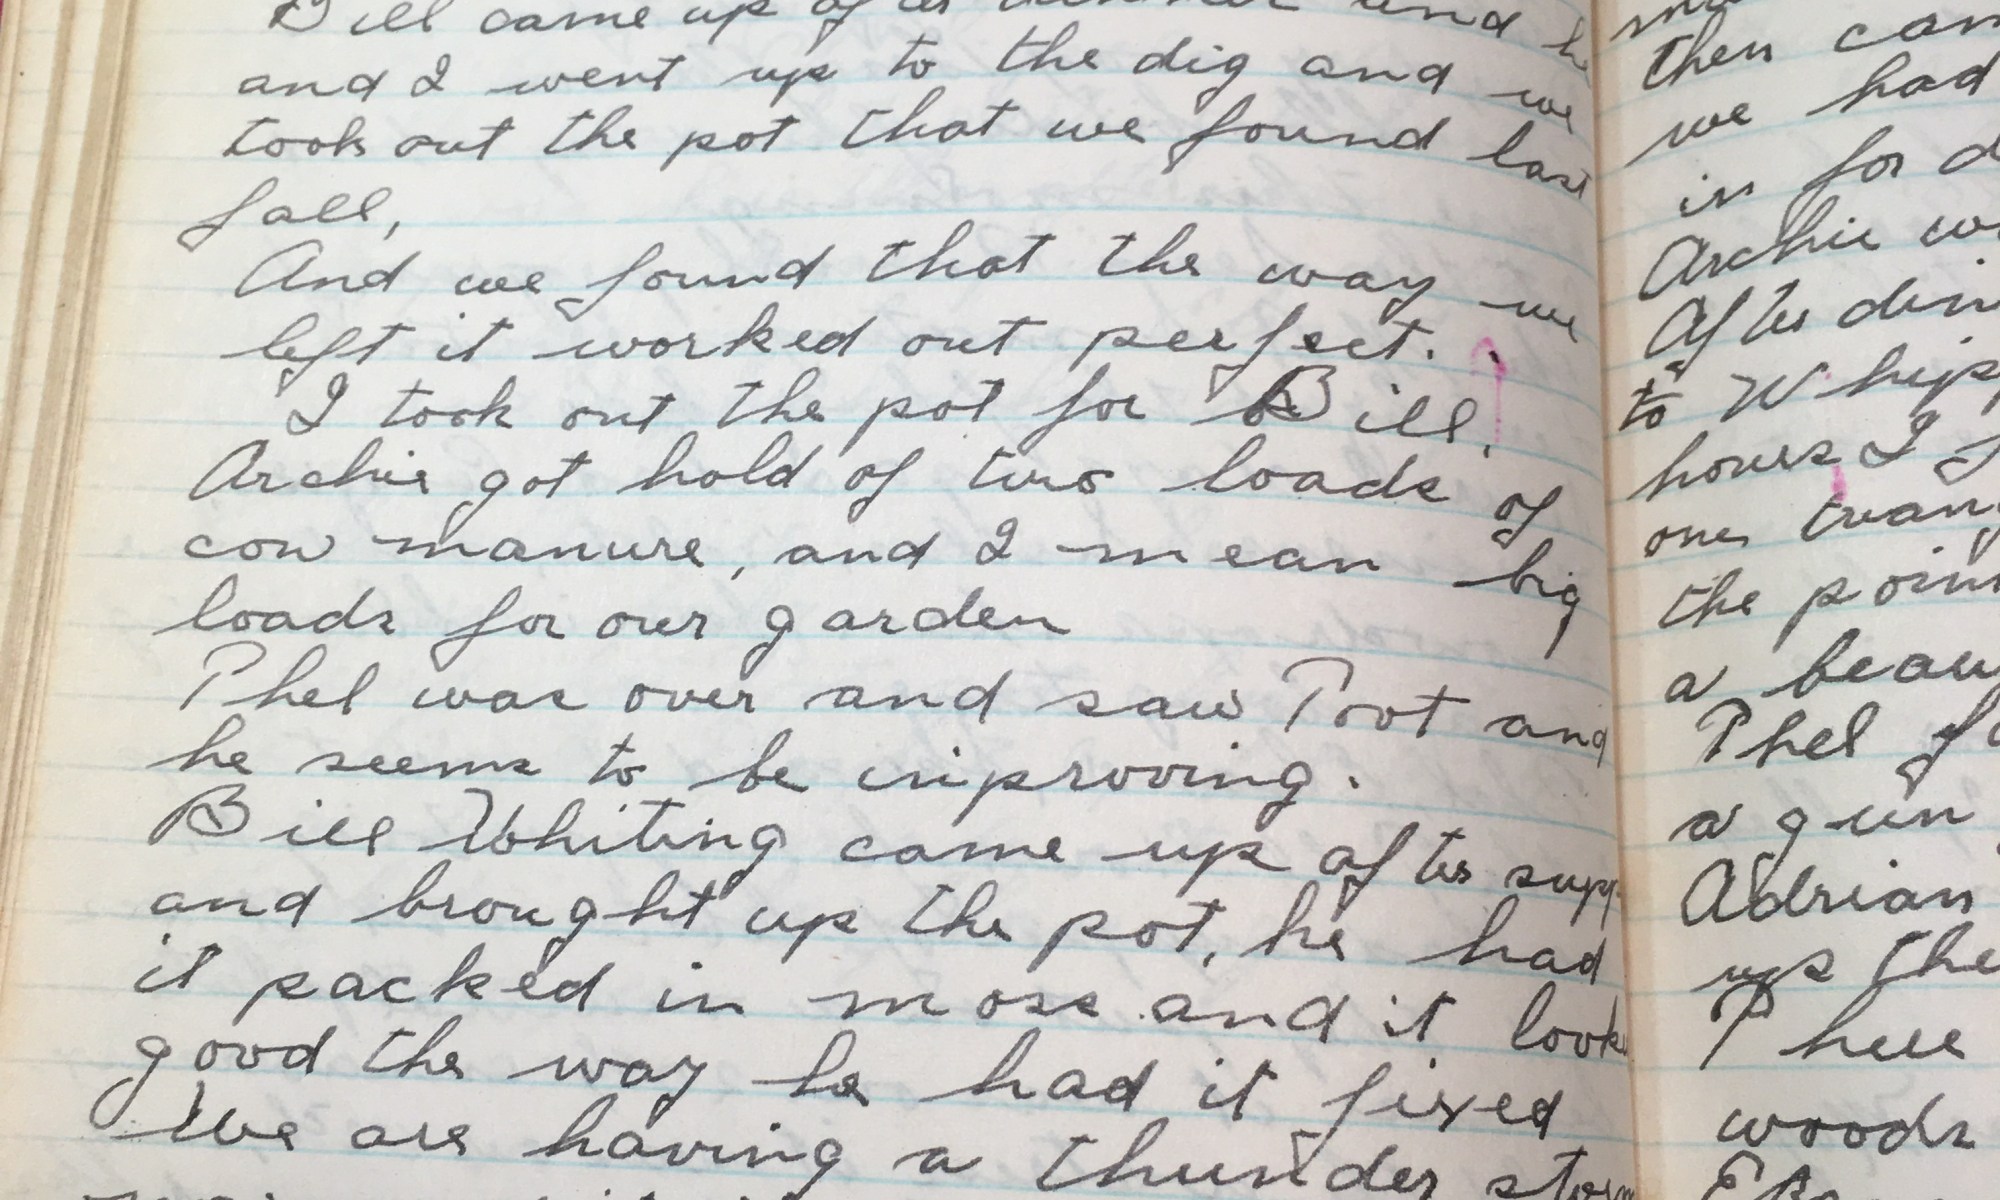 Bill came up after dinner and he
and I went up to the dig and we
took out the pot that we found last
fall,
And we found that the way we
left it worked out perfect.
I took out the pot for Bill,
Archie got hold of two loads of
cow manure, and I mean big
loads for our garden
Phel was over and saw Poot and
he seems to be inproving.
Bill Whiting came up after supp
and brought up the pot, he had
it packed in moss and it look
good the way he had it fixed
We are having a thunder storm
then
we had
in for d
Archie
After din
to Whip
hours I
one
the poin
a beau
Phel
a gun
Adrian
up the
Phee
woods